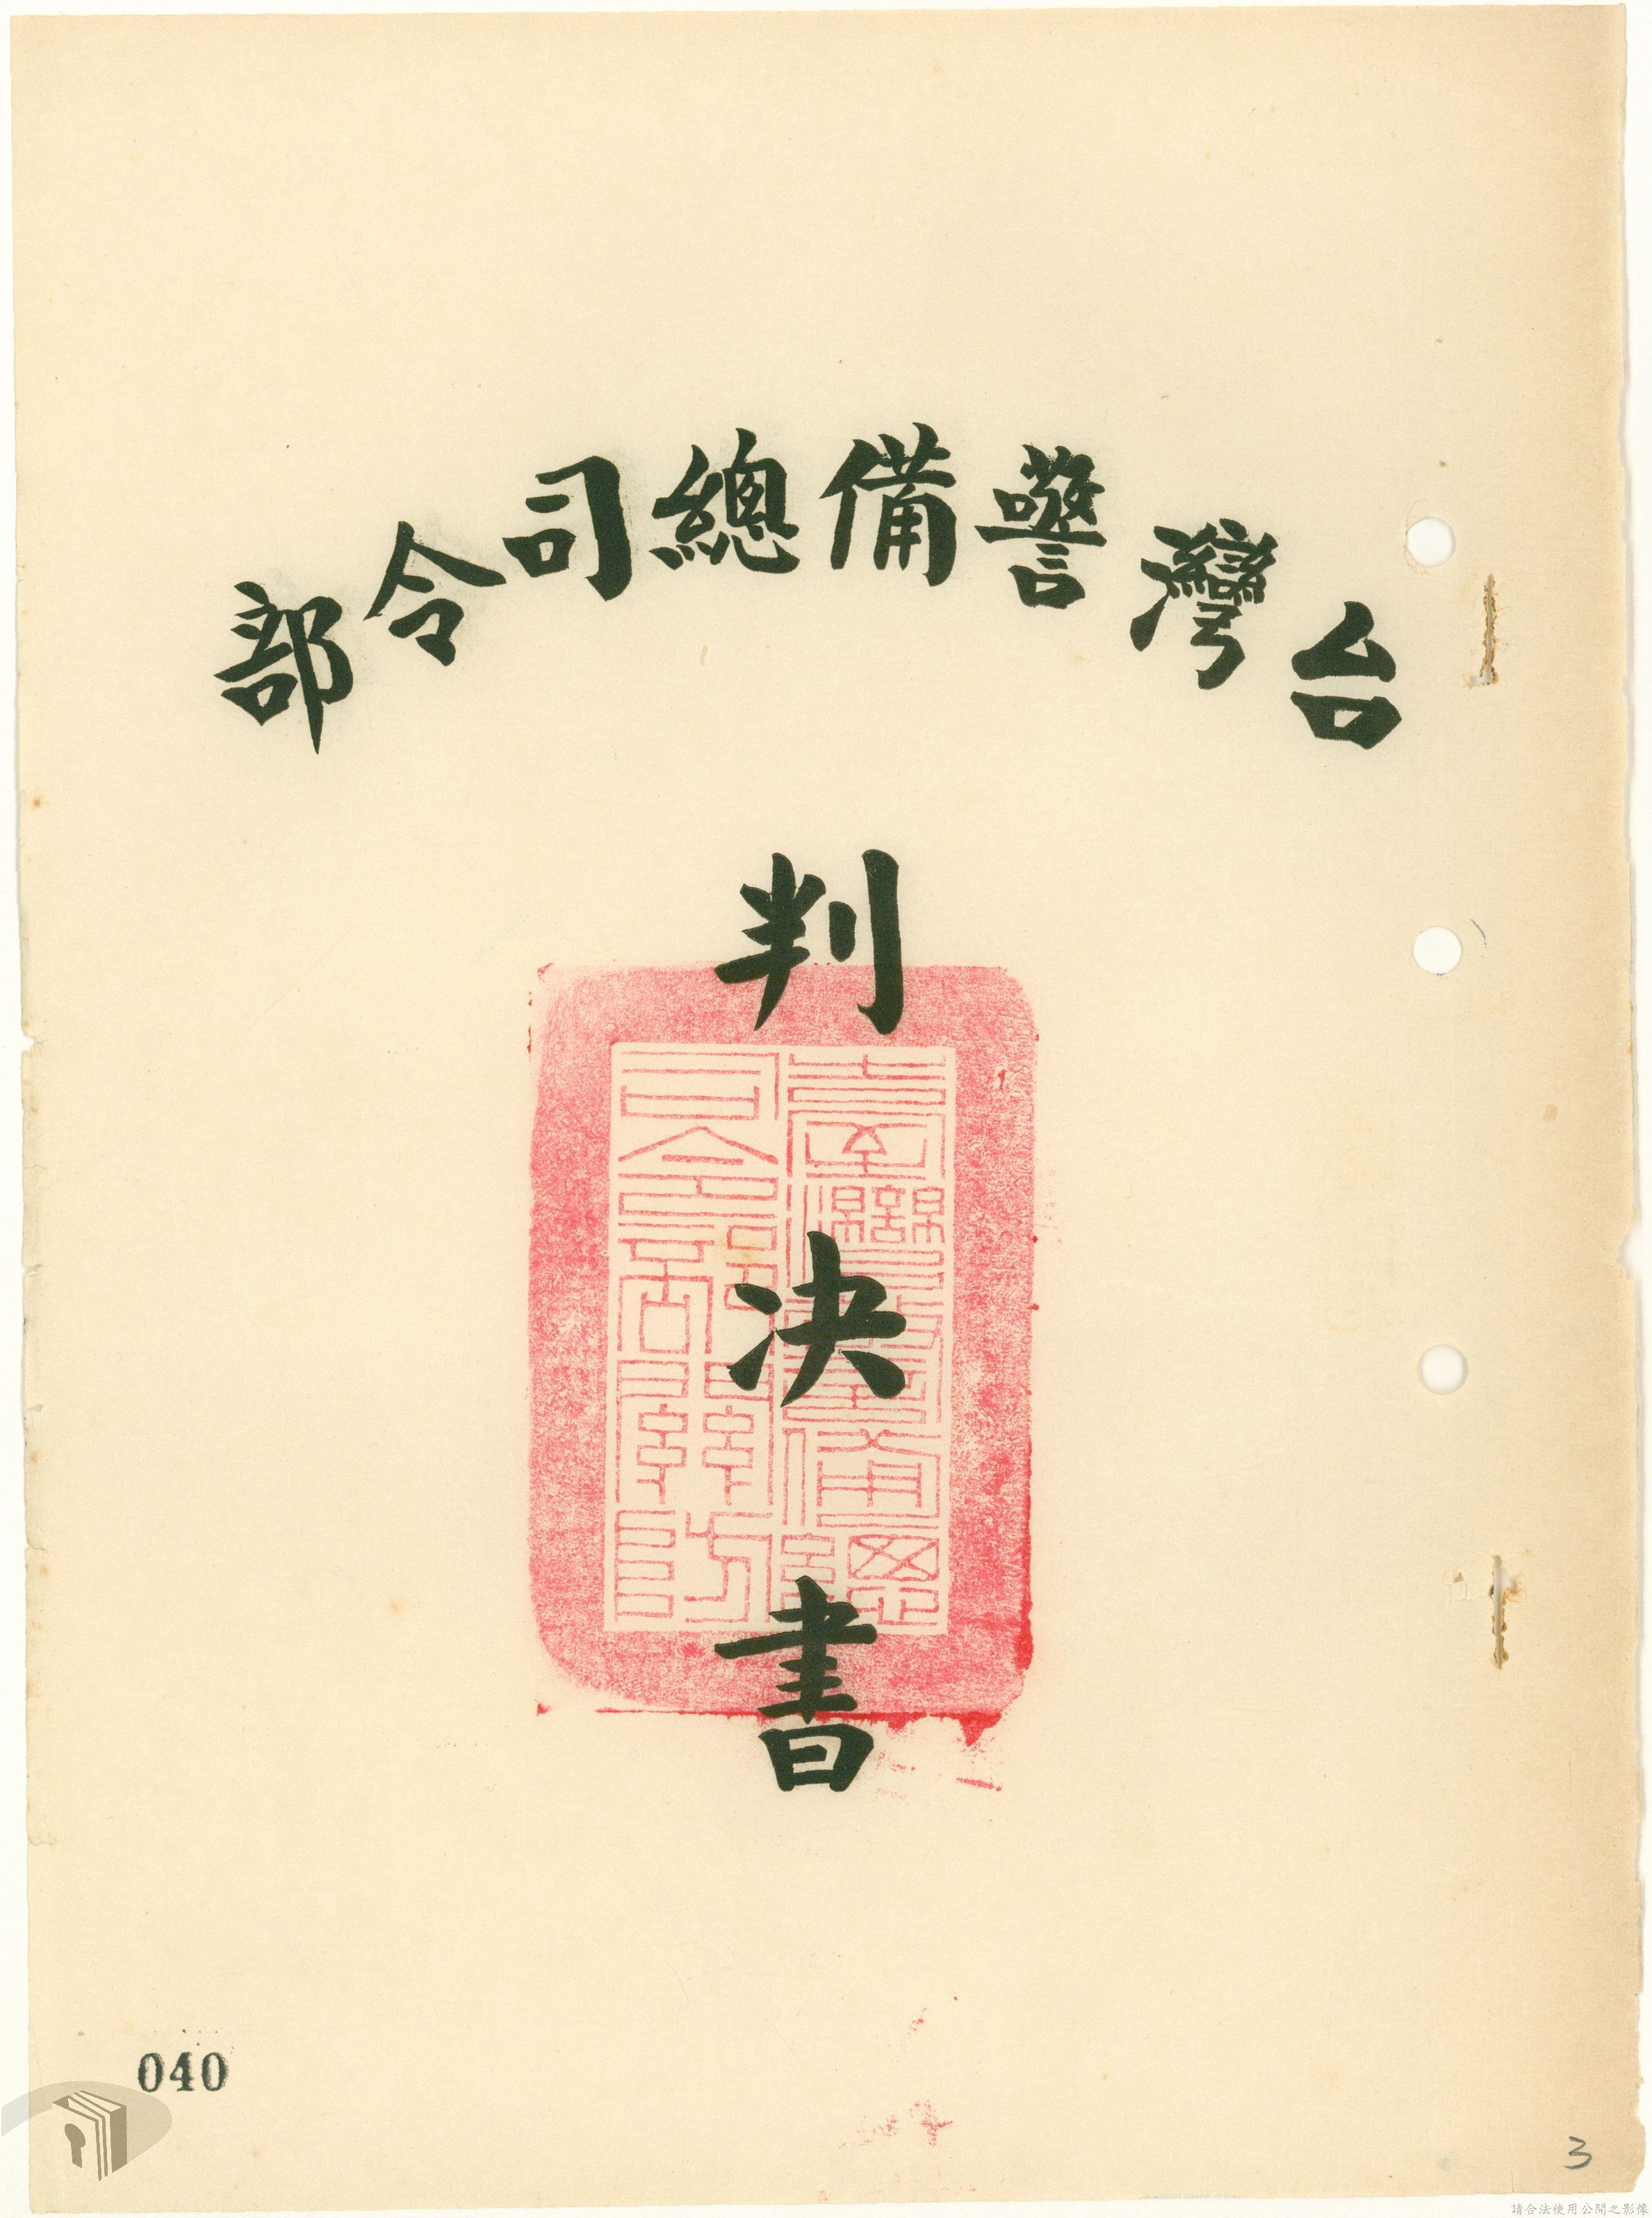 台灣警備總司令部
判決書
臺灣警備總
司令部
關防
040
3
請合法使用公開之影像